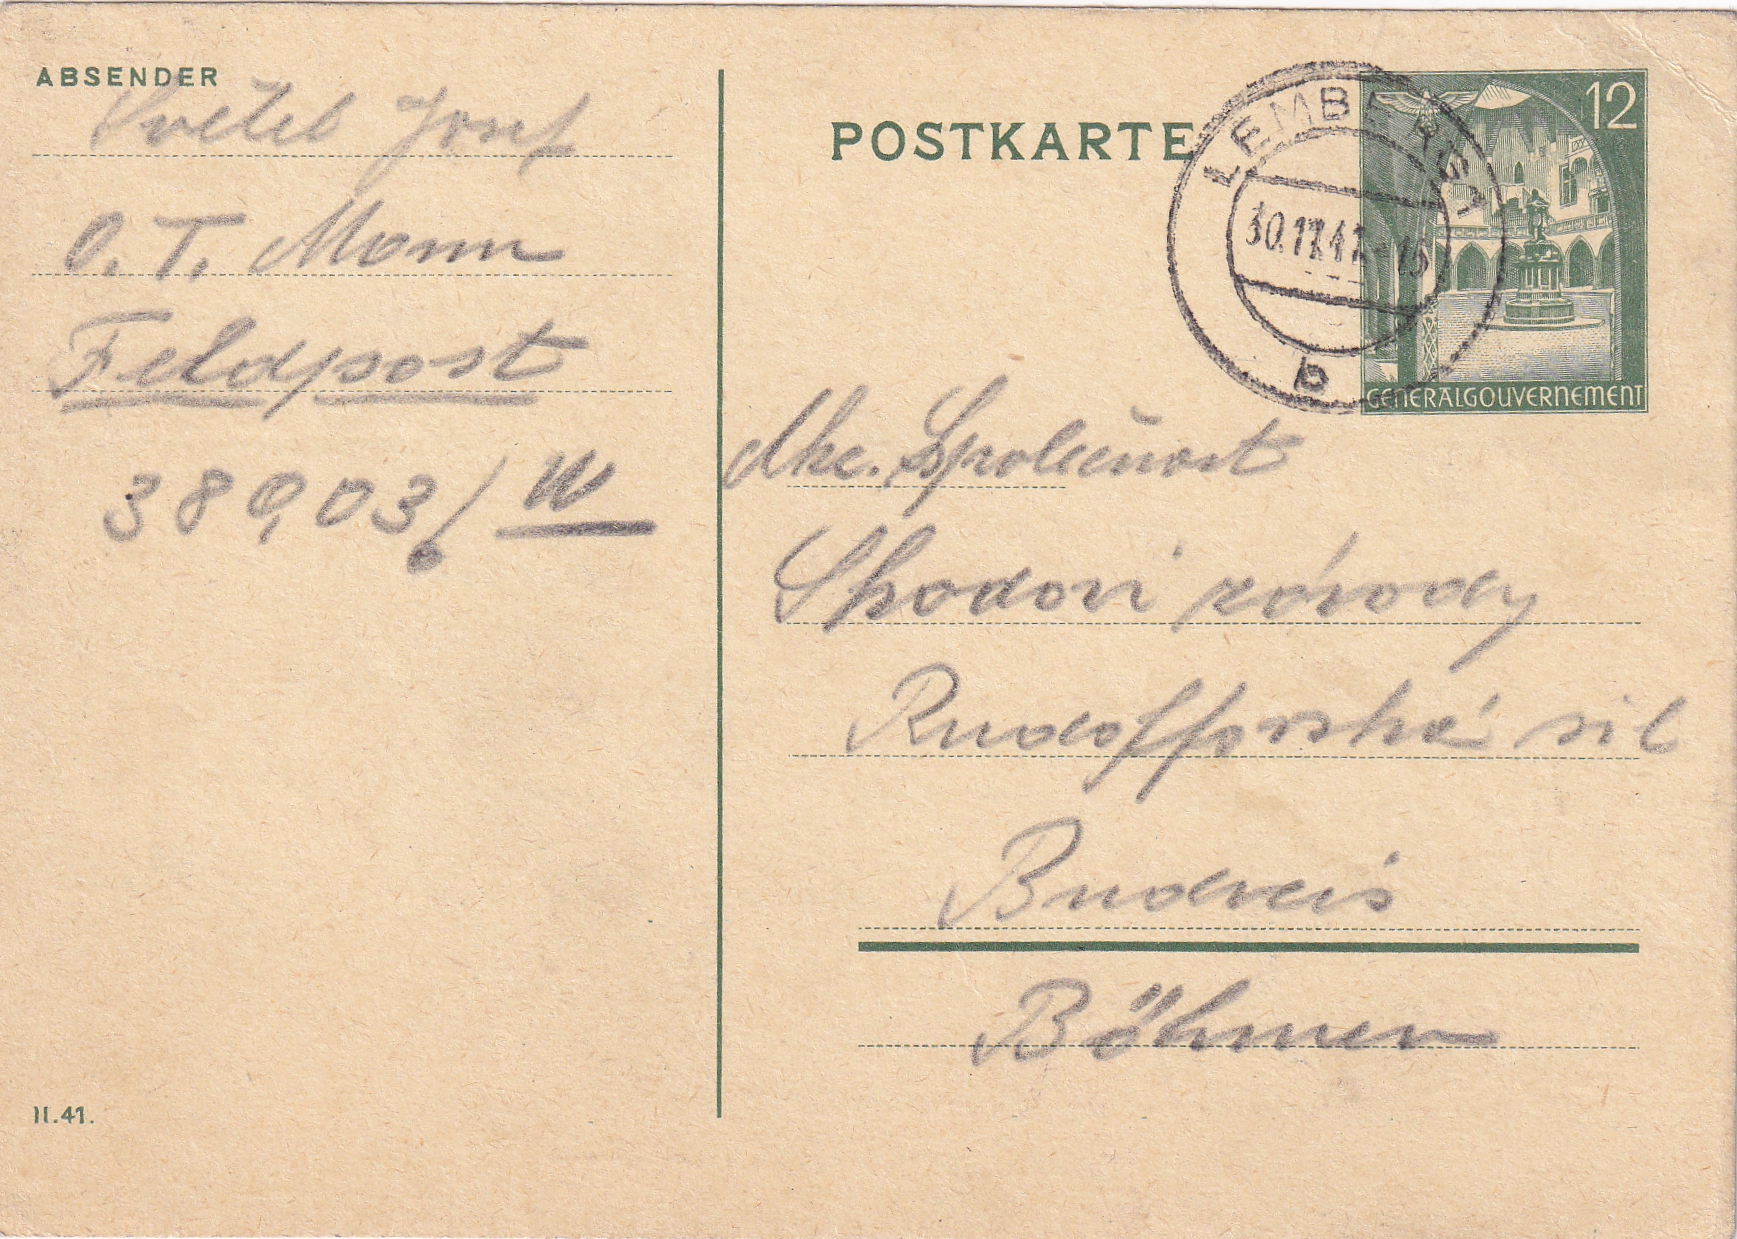 ABSENDER
Světel Josef
O. T. Mann
Feldpost
38903/W
II.41.
POSTKARTE
LEMBERG 1
30.11.41.-15
b
12
GENERALGOUVERNEMENT
Akc. Společnost
Škodovi závody
Rudolfovská sil
Budweis
Böhmen